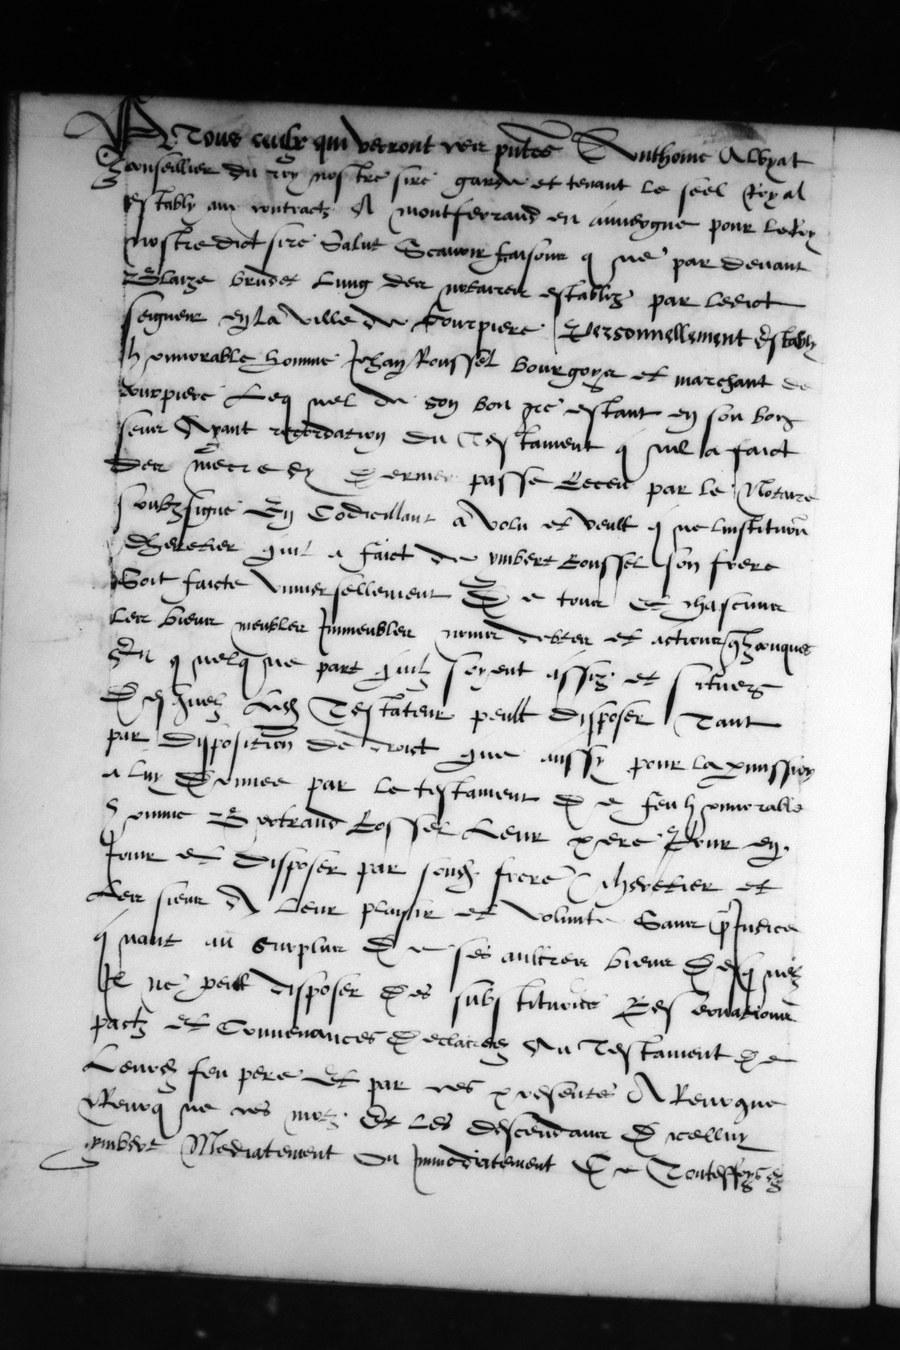 A Tous ceulx qui verront ces pntes Anthoine Albyat
conseillier du roy nostre sire garde et tenant le seel Royal
estably aux contractz A montferrand en auvergne pour le Roy
nostredict sire Salut Scavoir faisons q ue par devant
Blaize brunet Lung des notaires establiz par ledict
seigneur en la ville de Courpiere Personnellement estably
honnorable homme Jehan Roussel bourgoys et marchant de
Courpiere Leq uel de son bon gre estant en son bon
sens Ayant recordation du Testament q uil a faict
passe Receu par le Notaire
soubzsigne En Codicillant a volu et veult q ue linstitution
dheretier quil a faict de ymbert Roussel son frere
Soit faicte universellement De tous et chascuns
les biens meubles Immeubles noms debtes et actions q
En q uelq ue part quilz soyent assiz et situez
Desquelz Led Testateur peult disposer Tant
par disposition de droict que aussy pour la pmission
a luy donnee par le testament De feu honnorable
homme Bertrand Rossel Leur pere Pour en
Jouir et disposer par sond frere heretier et
les siens A leur plaisir et volunte Sans pJudice
q uant au surplus De ses aultres biens Desq uelz
Il ne peult disposer Des substitutions donations
pactz et Convenances Declairees Au Testament De
Leurd feu pere Et par ces presentes A Revoque
Revoq ue ces motz Et les descendans D icelluy
ymbert Mediatement ou Immediatement De Toutesfoys